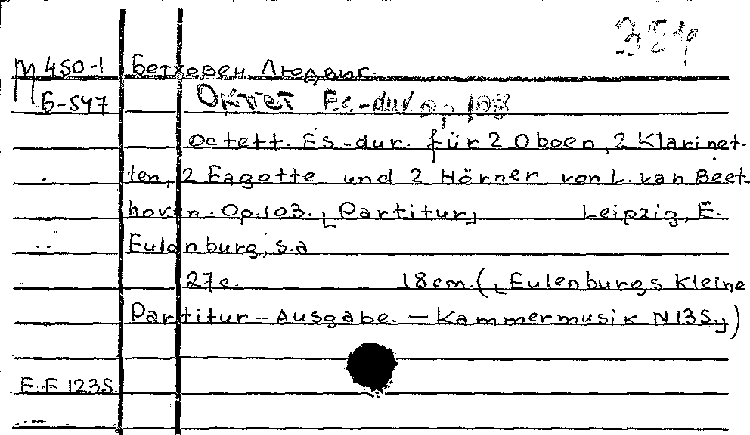 М 450-1 Бетховен Людвиг
Б-547 Октет Es-dur op 103
Octett. Es-dur. für 2 Oboen, 2 Klarinet-
ten, 2 Fagotte und 2 Hörner von L. van Beet-
hoven. Op. 103. [Partitur] Leipzig, E.
Eulenburg, s.a
27c. 18cm. ([Eulenburgs kleine
Partitur-Ausgabe. - Kammermusik N 135])
E.E 1235